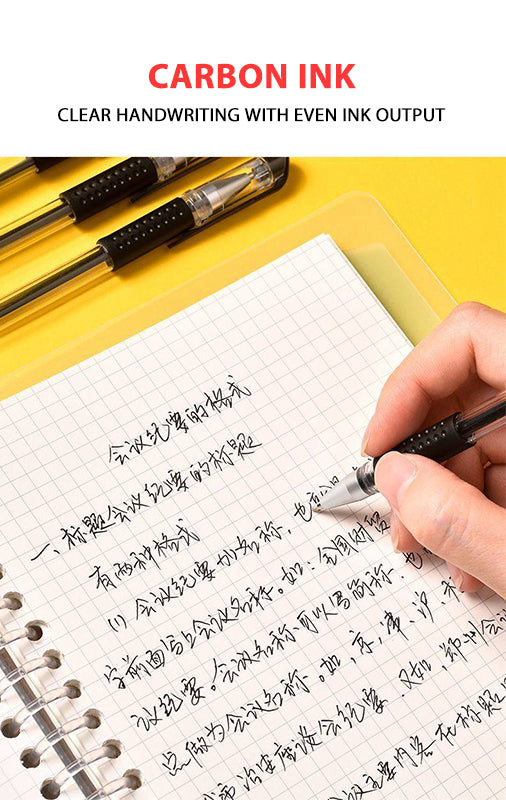 CARBON INK
CLEAR HANDWRITING WITH EVEN INK OUTPUT
会议纪要的格式
一、标题会议纪要的标题
有两种格式
(1) 会议纪要加名称，也
字前面写上会议名称。如：全国财贸
议纪要。会议名称可以写简称，也
点做为会议名称。如，京、津、沪、
议纪要，又如，郑州会议